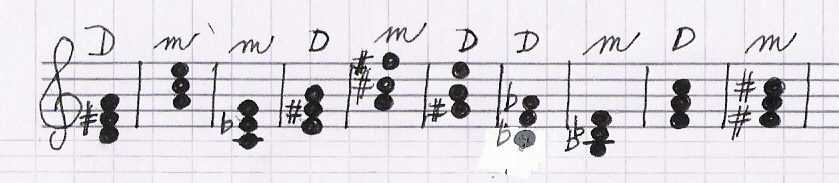 D m m D m D D m D m